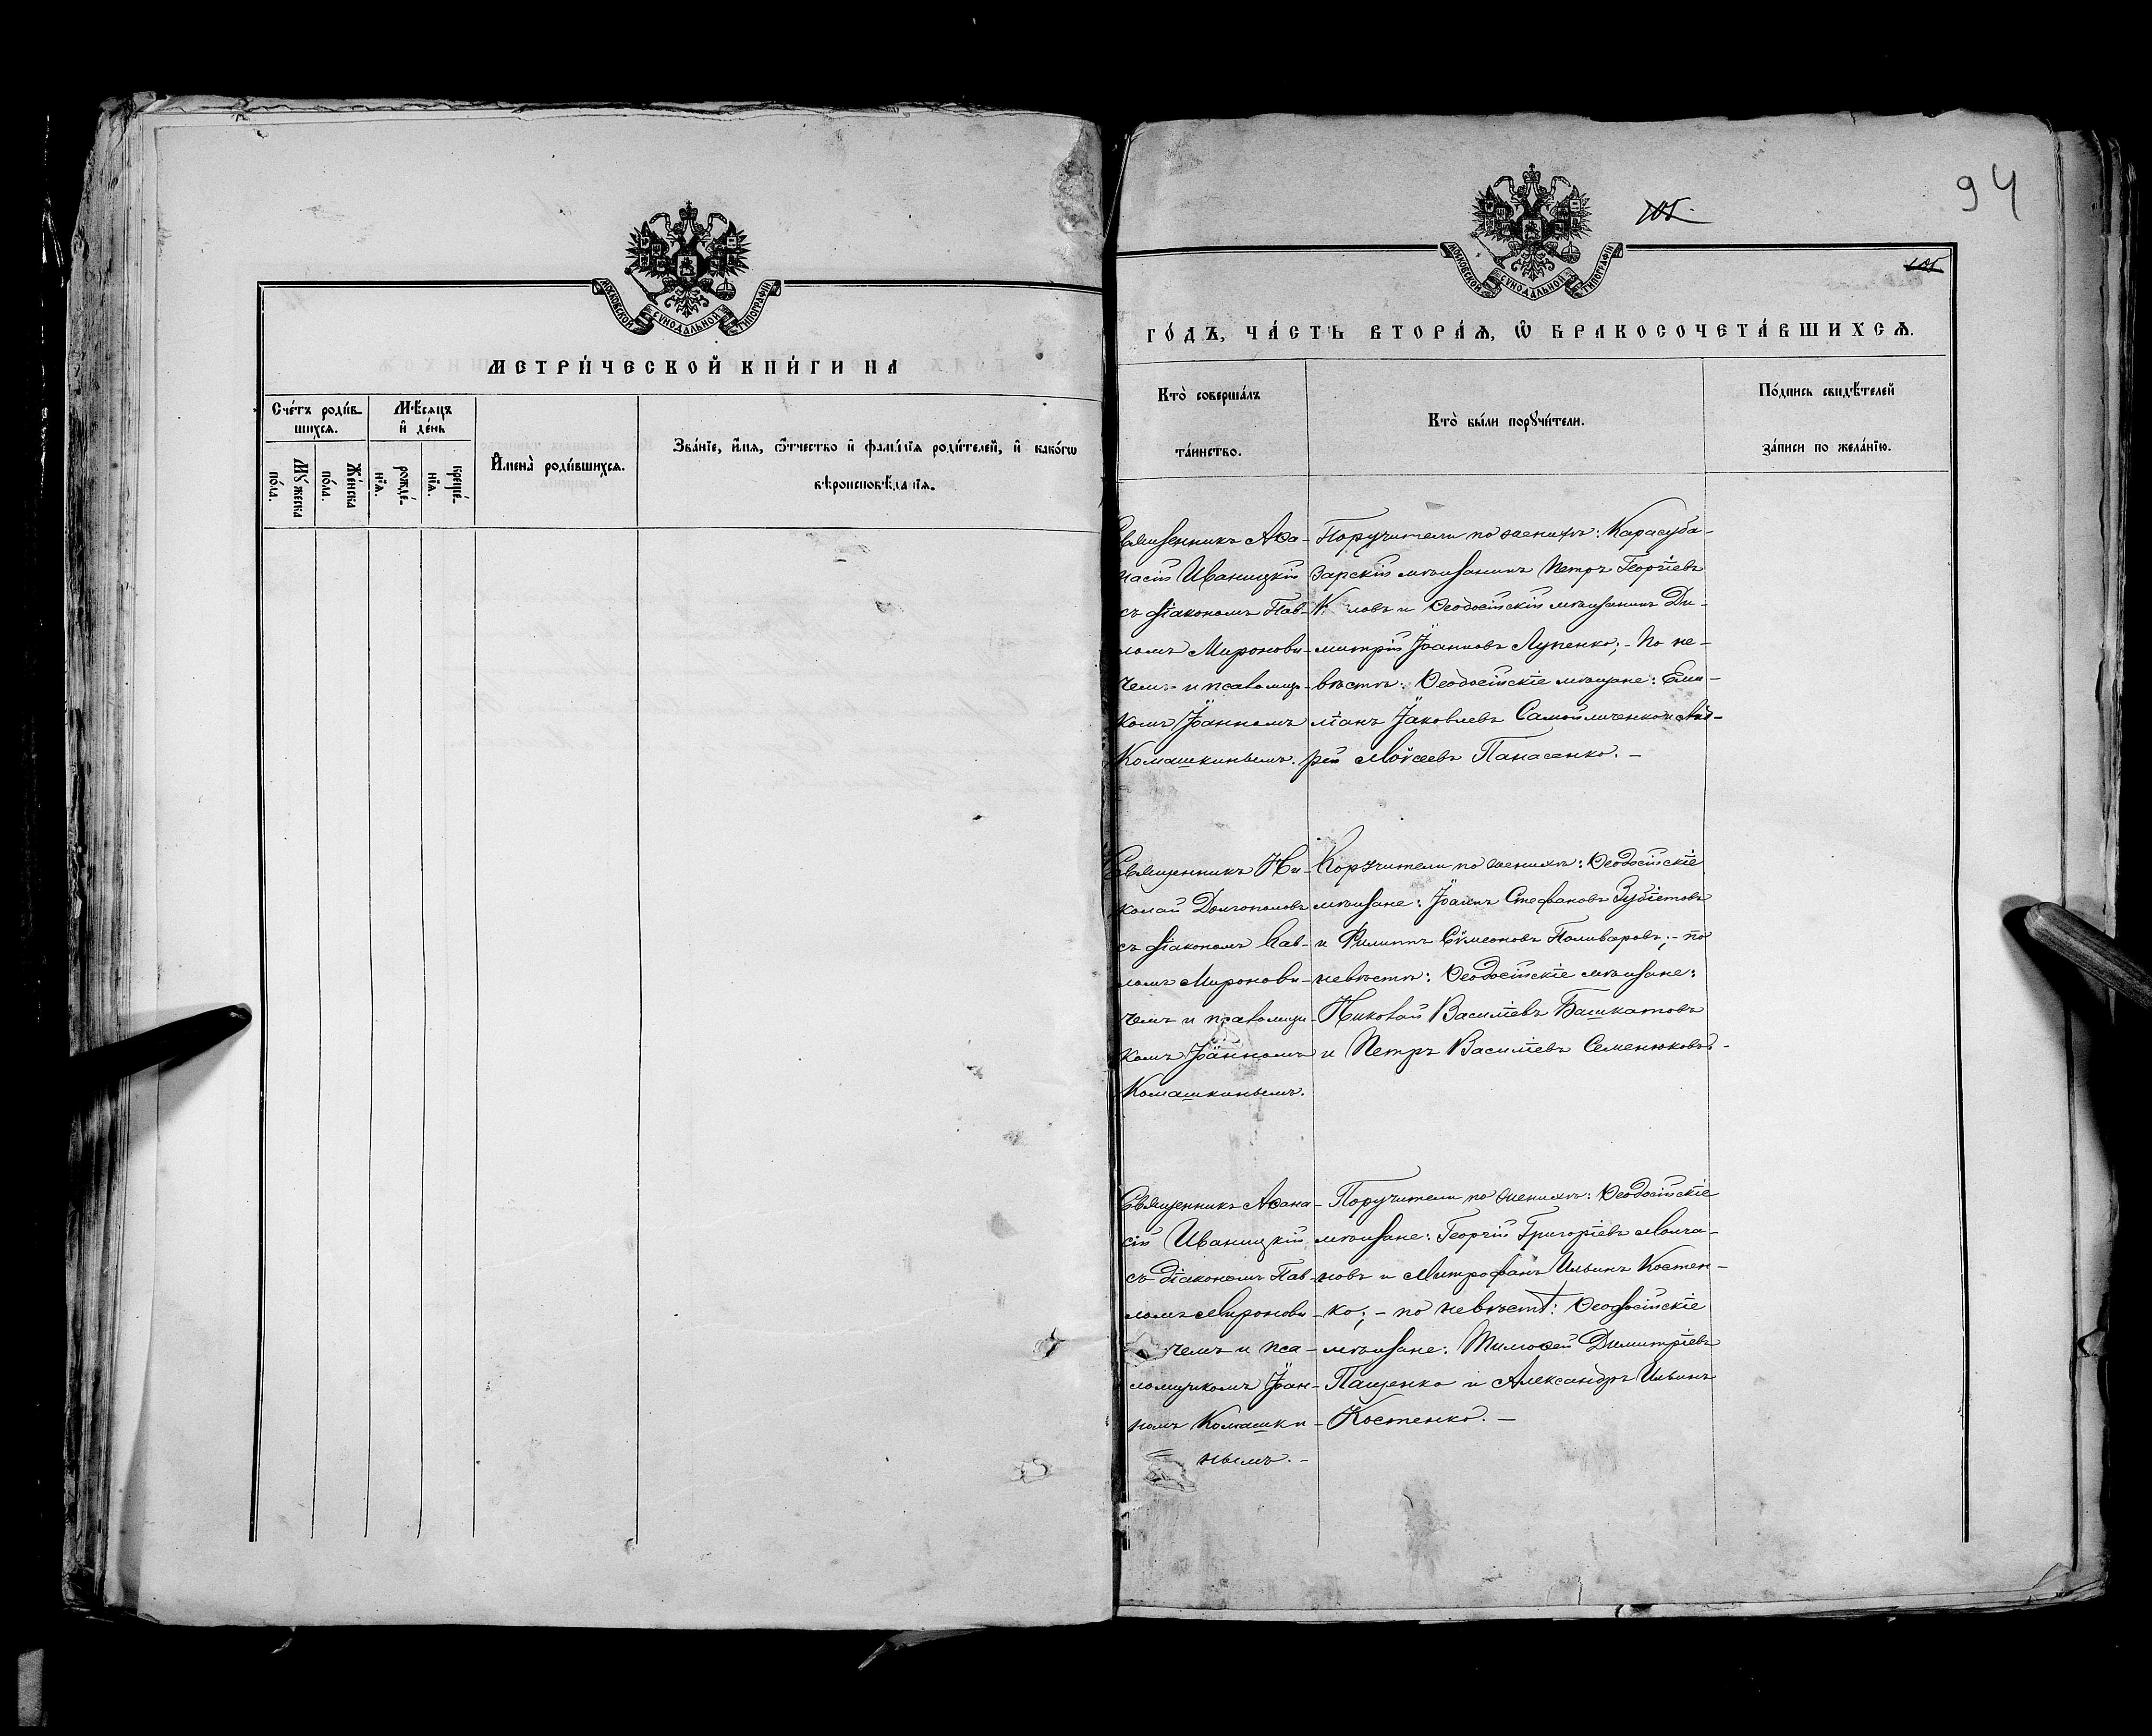 94
105
105
МОСКОВСКОЙ СѴНОДАЛЬНОЙ ТИПОГРАФІИ
МЕТРИ́ЧЕСКОЙ КНИ́ГИ НА
Сче́тъ роди́в-
шихся.
Мꙋ́жеска
по́ла.
Же́нска
по́ла.
Мѣ́сяцъ
и҆ де́нь
рожде́-
нїя.
креще́-
нїя.
И҆мена̀ роди́вшихся.
Зва́нїе, и҆́мя, ѻ҆́тчество и҆ фамилїя роди́телей, и҆ како́гѡ
вѣроисповѣ́данїя.
МОСКОВСКОЙ СѴНОДАЛЬНОЙ ТИПОГРАФІИ
ГО́ДЪ, ЧА́СТЬ ВТОРА́Я, Ѡ҆ БРАКОСОЧЕТА́ВШИХСЯ.
Кто̀ соверша́лъ
та́инство.
Кто̀ бы́ли порꙋчи́тели.
По́дпись свидѣ́телей
за́писи по жела́нїю.
Священникъ Аѳа-
насій Иваницкій
съ діакономъ Пав-
ломъ Миронови-
чемъ и псаломщи-
комъ Іоанномъ
Комашкинымъ.
Поручители по женихѣ: Карасуба-
зарскій мѣщанинъ Петръ Георгіевъ
К ловъ и Ѳеодосійскій мѣщанинъ Ди-
митрій Іоанновъ Лупенко; - По не-
вѣстѣ: Ѳеодосійскіе мѣщане: Еми-
ліанъ Іаковлевъ Самойличенко и Анд-
рей Моѵсеевъ Панасенко. -
Священникъ Ни-
колай Долгополовъ
съ діакономъ Пав-
ломъ Миронови-
чемъ и псаломщи-
комъ Іоанномъ
Комашкинымъ.
Поручители по женихѣ: Ѳеодосійскіе
мѣщане: Іоаннъ Стефановъ Зубіетовъ
и Филиппъ Сѵмеоновъ Поливаровъ; - по
невѣстѣ: Ѳеодосійскіе мѣщане:
Николай Василіевъ Башкатовъ
и Петръ Василіевъ Семенюковъ. -
Священникъ Аѳана-
сій Иваницкій
съ діакономъ Пав-
ломъ Миронови-
чемъ и пса-
ломщикомъ Іоан-
номъ Комашки-
нымъ. -
Поручители по женихѣ: Ѳеодосійскіе
мѣщане: Георгій Григоріевъ Молча-
новъ и Митрофанъ Ильинъ Костен-
ко; - по невѣстѣ: Ѳеодосійскіе
мѣщане: Тимоѳей Димитріевъ
Пащенко и Александръ Ильинъ
Костенко. -